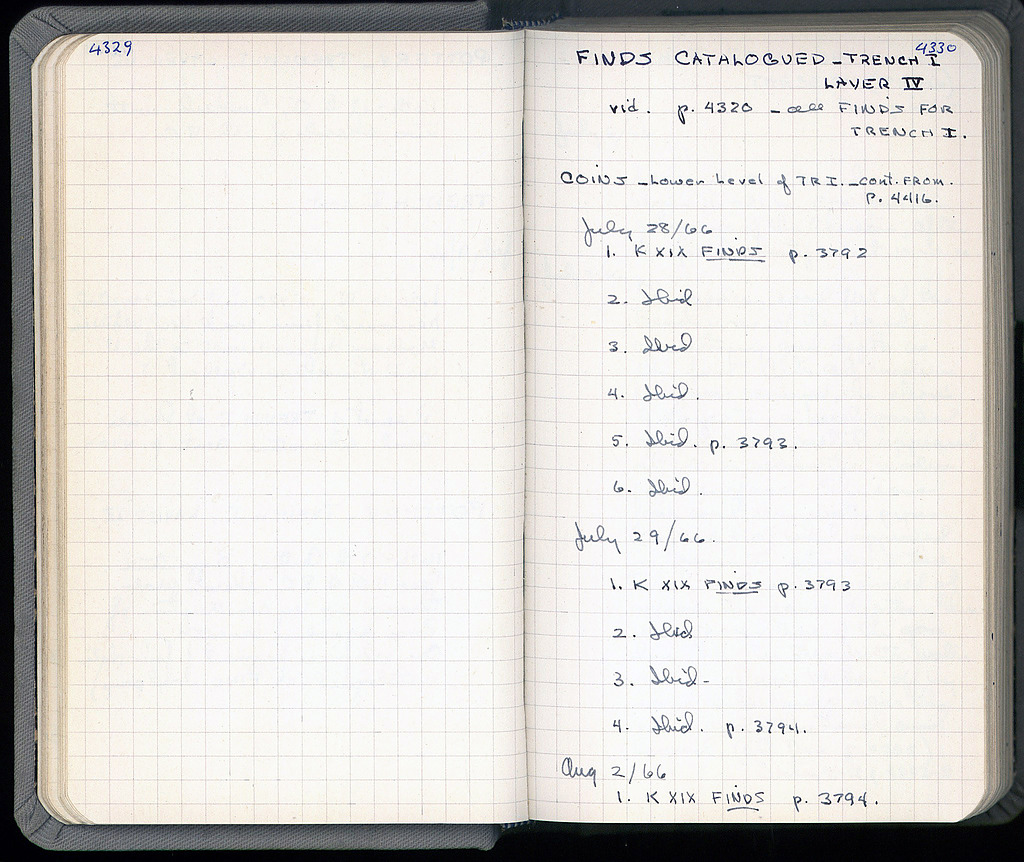 4329
4330
FINDS CATALOGUED - TRENCH I
LAYER IV
vid. p. 4320 - all FINDS FOR
TRENCH I.
COINS - Lower Level of TR I. - cont. FROM.
P. 4416.
July 28/66
1. K XIX FINDS p. 3792
2. Ibid
3. Ibid
4. Ibid.
5. Ibid. p. 3793.
6. Ibid.
July 29/66.
1. K XIX FINDS p. 3793
2. Ibid
3. Ibid -
4. Ibid. p. 3794.
Aug 2/66
1. K XIX FINDS p. 3794.